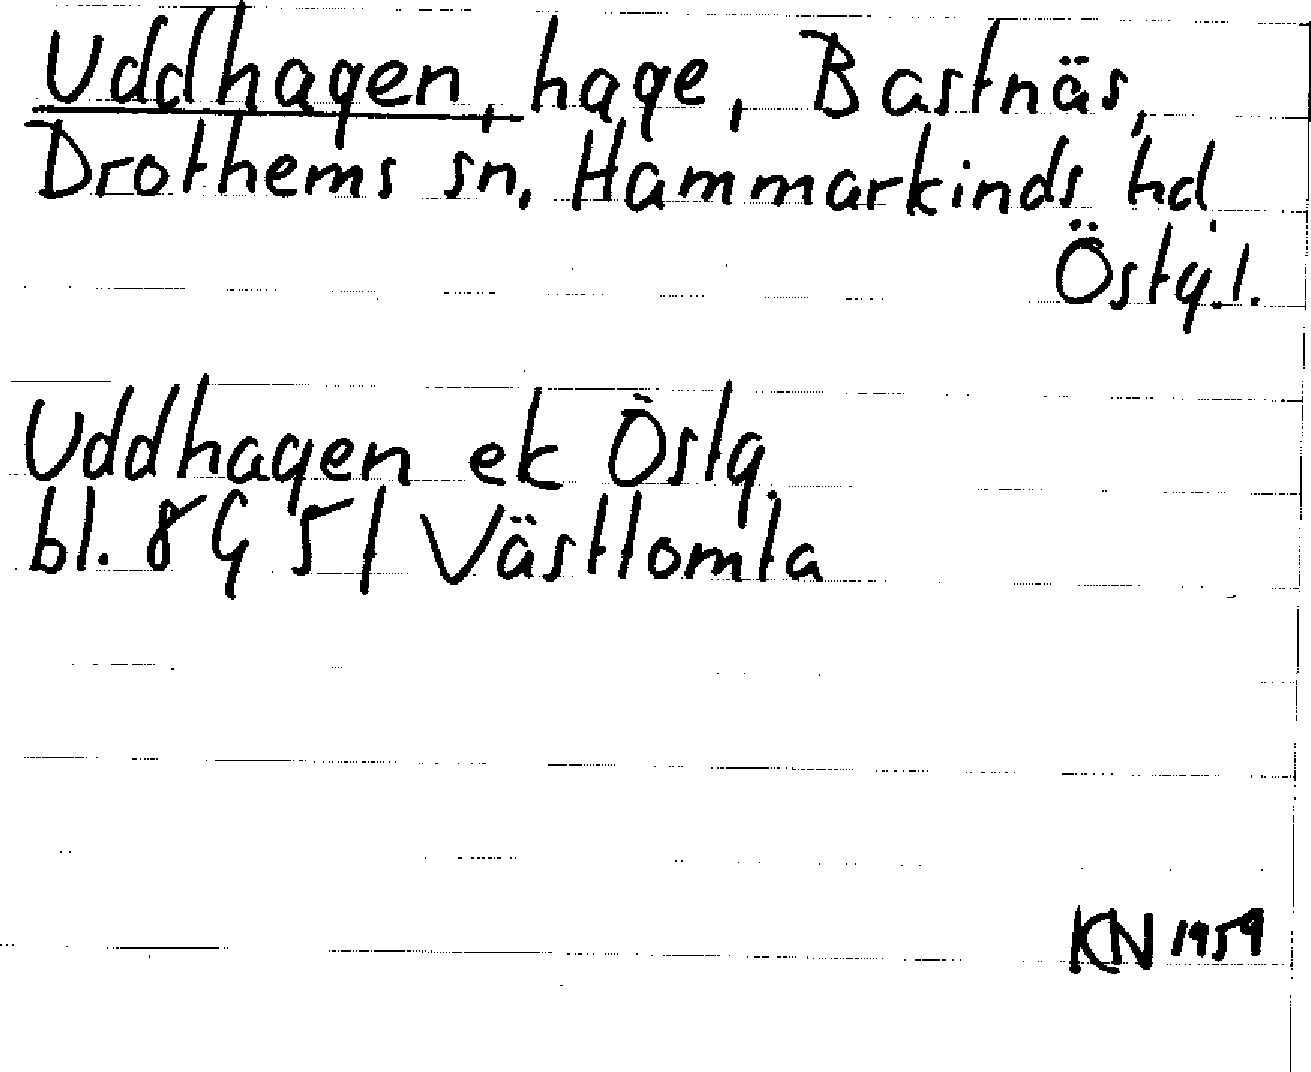 Uddhagen, hage, Bastnäs,
Drothems sn. Hammarkinds hd.
Östg.l.
Uddhagen ek Östg.
bl. 8G 51 Västtomta
KN 1959